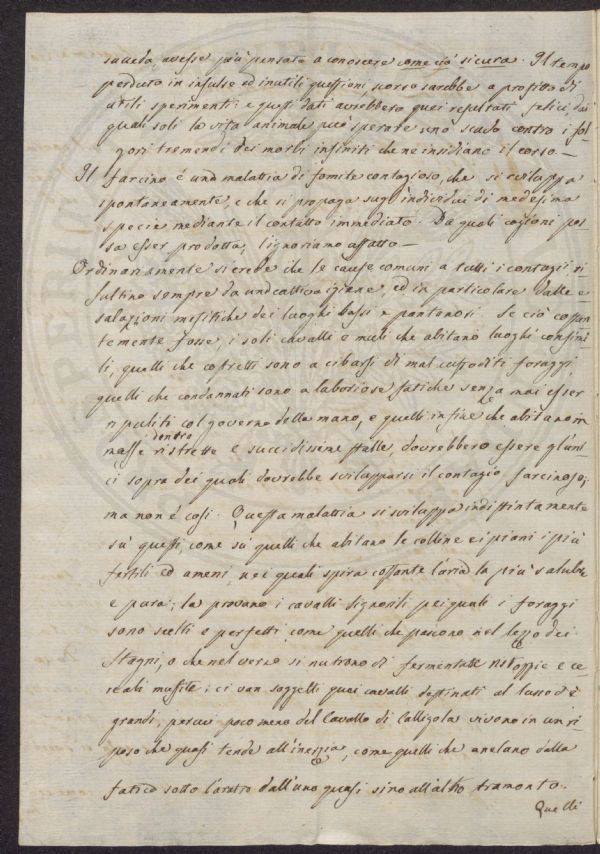 suceda, avesse più pensato a conoscere come ciò sicura. Il tempo
perduto in insulse ed inutili questioni, scorso sarebbe a profitto di
utili sperimenti: e questi dati avrebbero quei resultati felici, dai
quali soli la vita animale può sperare uno scudo contro i fol-
gori tremendi dei morbi infiniti che ne insidiano il corso —
Il farcino é una malattia di fomite contagioso, che si sviluppa
spontaneamente, e che si propaga sugl'individui di medesima
specie mediante il contatto immediato. Da quali cagioni pos-
sa esser prodotta, l'ignoriamo affatto —
Ordinariamente si crede che le cause comuni a tutti i contagii, ri-
sultino sempre da una cattiva igiane, ed in particolare dalle e-
salazioni mefitiche dei luoghi bassi e pantanosi. Se ciò costan-
temente fosse, i soli cavalli e muli che abitano luoghi consimi-
li, quelli che costretti sono a cibarsi di mal custoditi foraggi,
quelli che condannati sono a laboriose fatiche senza mai esser
ripuliti col governo della mano, e quelli infine che abitano in
masse dentro ristrette e succidissime stalle, dovrebbero essere gl'uni-
ci sopra dei quali dovrebbe svilupparsi il contagio farcinoso;
ma non é così. Questa malattia si sviluppa indistintamente
sù questi, come sù quelli che abitano le colline e i piani i più
fertili ed ameni, nei quali spira costante l'aria la più salubre
e pura; la provano i cavalli signorili pei quali i foraggi
sono scelti e perfetti, come quelli che pascono nel lezzo dei
stagni, o che nel verno si nutrono di fermentate ristoppie e ce-
reali muffite; ci van soggetti quei cavalli destinati al lusso de'
grandi, percui poco meno del Cavallo di Calligola vivono in un ri-
poso che quasi tende all'inerzia, come quelli che anelano dalla
fatica sotto l'aratro dall'uno quasi sino all'altro tramonto.
Quelli